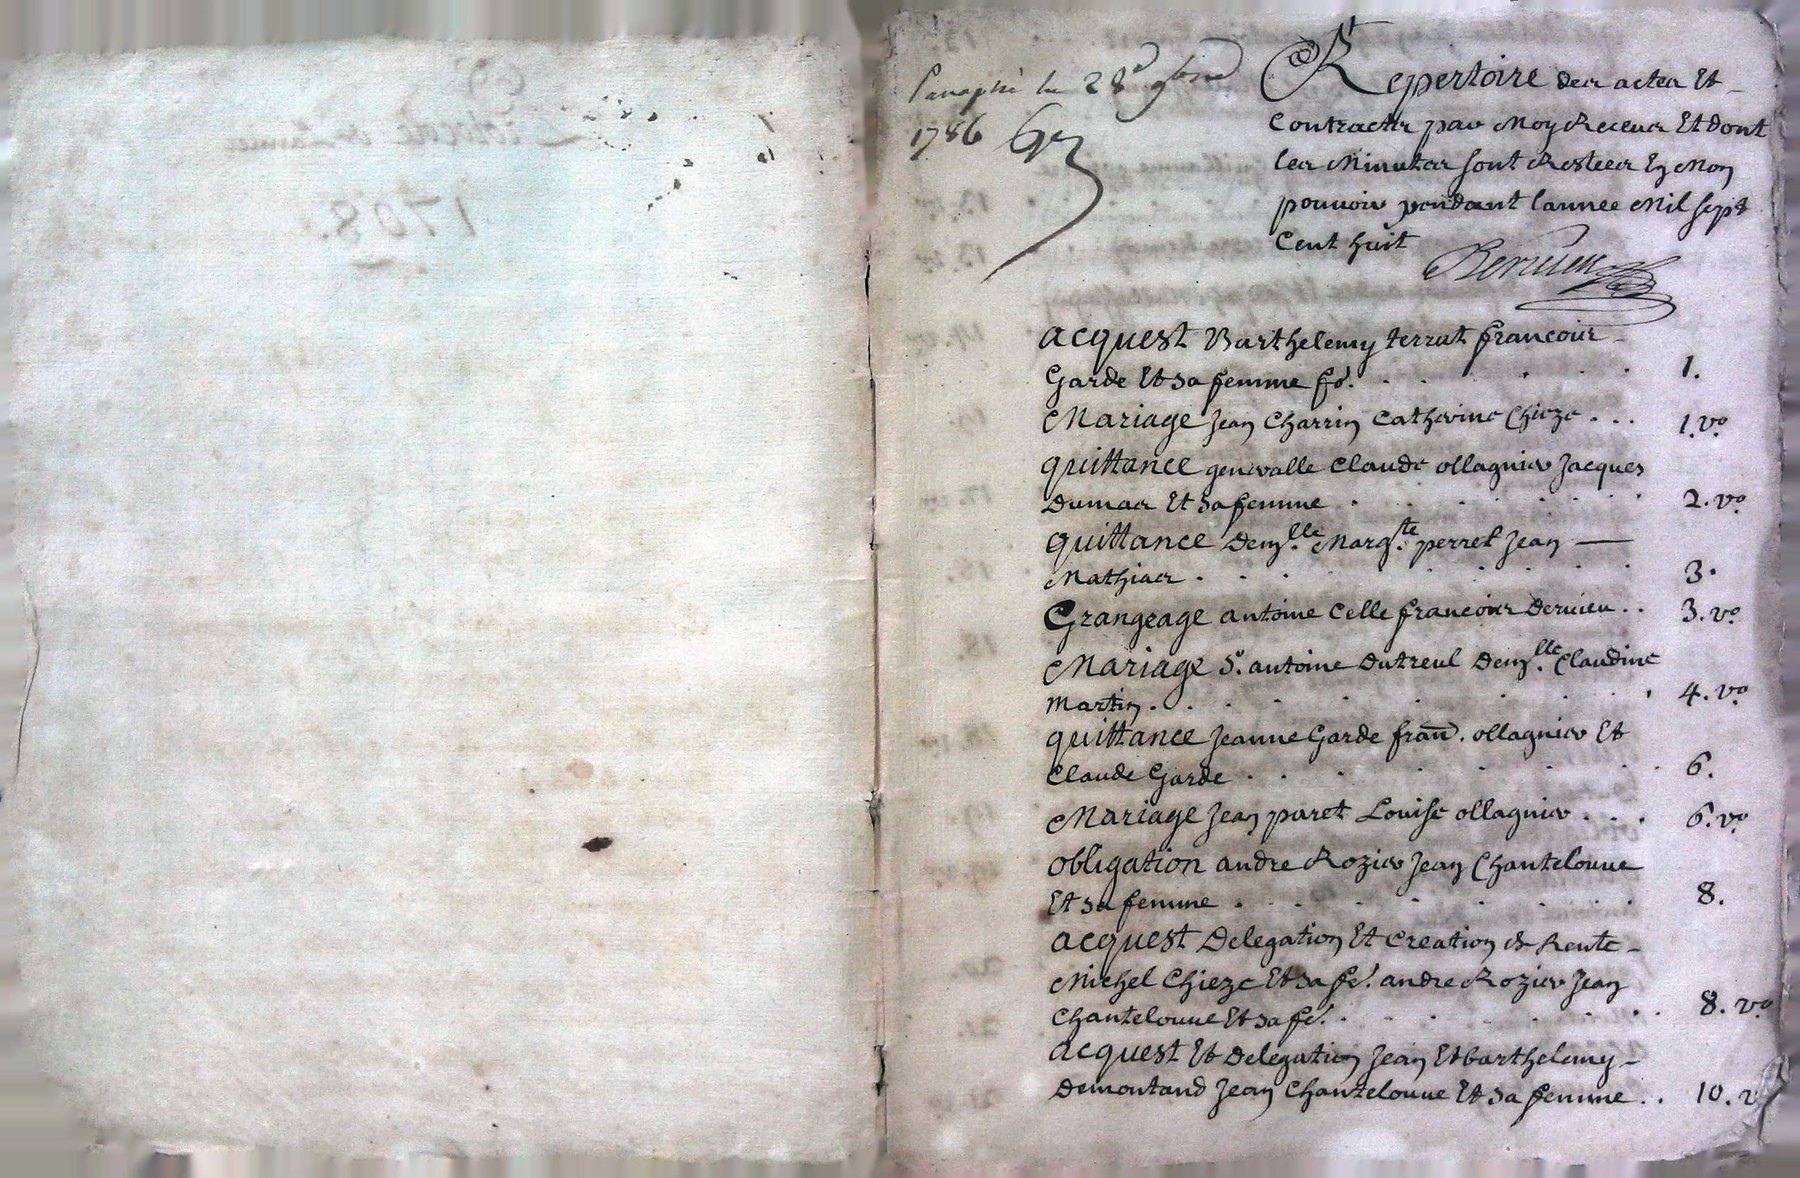 1708.
Paraphé le 28e 9bre
1786
Repertoire des actes Et
Contracts par Moy Receus Et dont
les Minutes sont Restees En Mon
pouvoir pendant lannee Mil sept
Cent huit
Dervieu
acquest Barthelemy terrat francois
Garde Et sa femme fe. 1.
Mariage Jean Charrin Catherine Chieze . . . 1. vo.
quittance generalle Claude ollagnier Jacques
Dumas Et sa femme 2. vo.
quittance Demlle. Margte. perret Jean —
Mathias . 3.
Grangeage antoine Celle francois Dervieu . . 3. vo.
Mariage Sr. antoine Dutreul Demlle. Claudine
Martin . 4. vo.
quittance Jeanne Garde fran. ollagnier Et
Claude Garde . 6.
Mariage Jean paret Louise ollagnier . . . 6. vo.
obligation andre Rozier Jean Chantelouue
Et sa femme . 8.
acquest Delegation Et Creation de Rente
Michel Chieze Et sa fe. andre Rozier Jean
Chantelouue Et sa fe. 8. vo
acquest Et Delegation Jean Et barthelemy
Demontand Jean Chantelouue Et sa femme . . 10. v